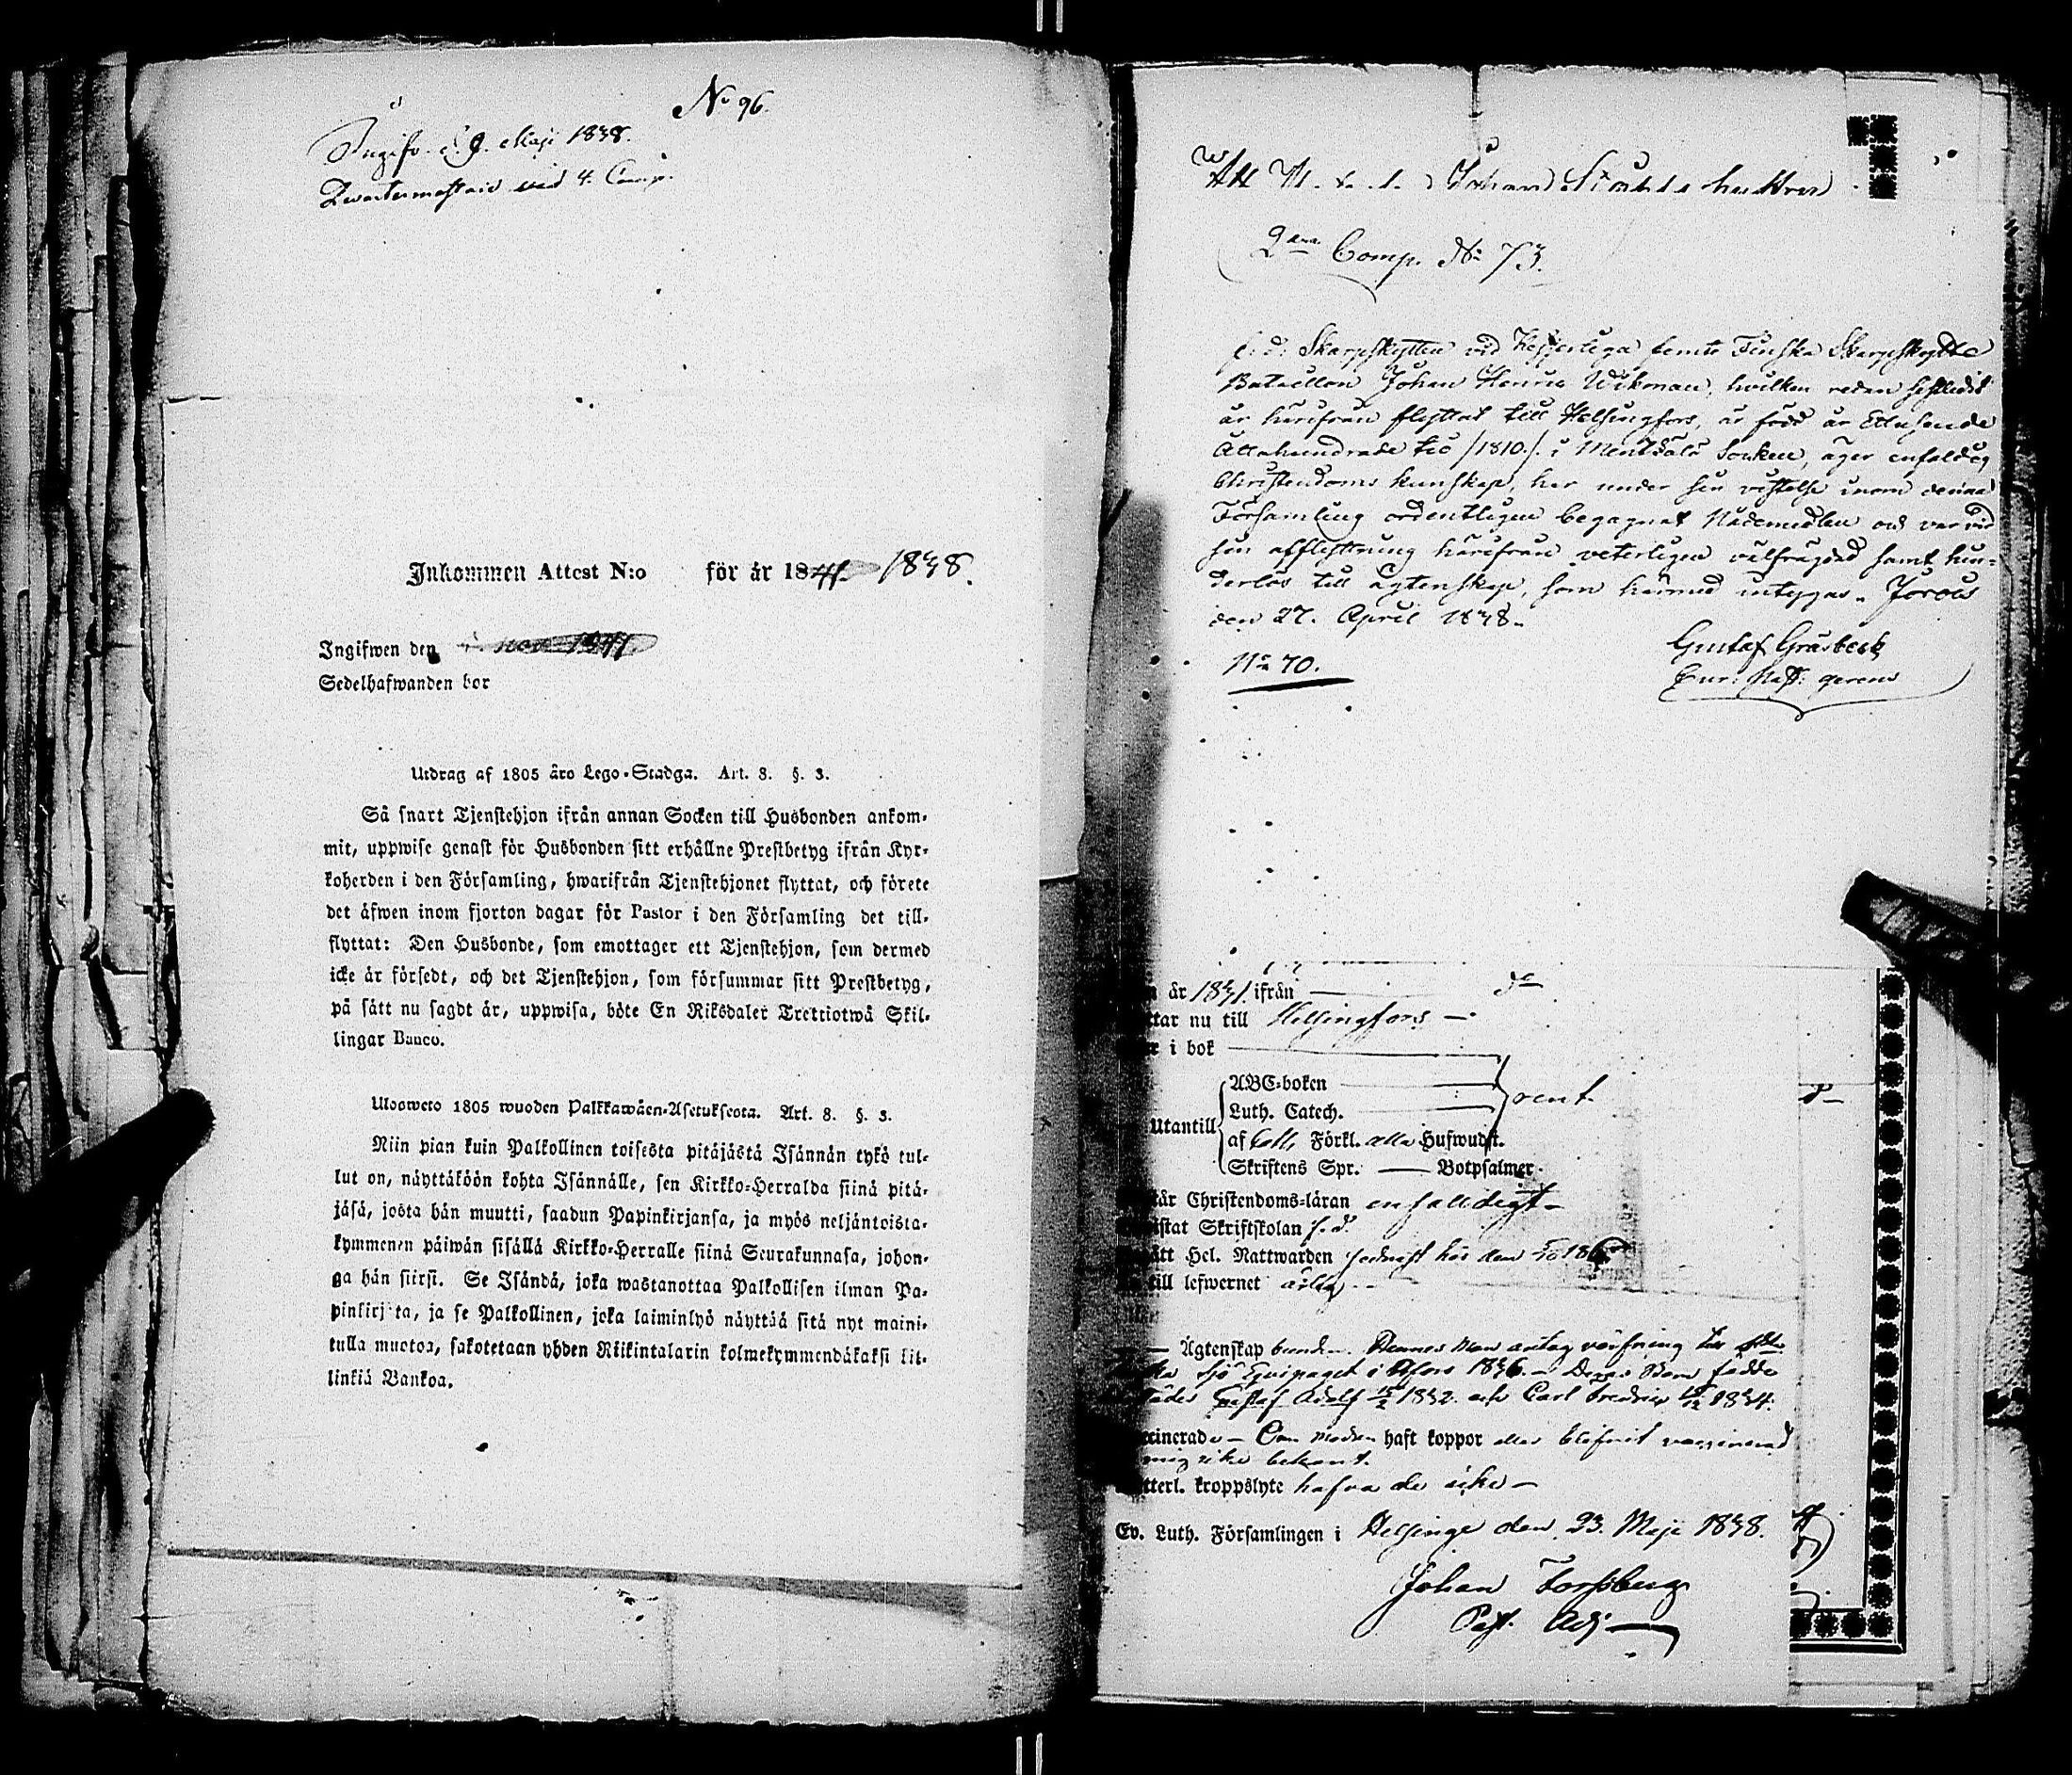 No 96.
Ingifv. d. 9. Maji 1838.
vid 4. Comp.
Inkommen Attest N:o för år 1841. 1838.
Ingifwen den nov. 1841
Sedelhafwanden bor
Utdrag af 1805 års Lego-Stadga. Art. 8. §. 3.
Så snart Tjenstehjon ifrån annan Socken till Husbonden ankom-
mit, uppwise genast för Husbonden sitt erhållne Prestbetyg ifrån Kyr-
koherden i den Församling, hwarifrån Tjenstehjonet flyttat, och förete
det äfwen inom fjorton dagar för Pastor i den Församling det till-
flyttat: Den Husbonde, som emottager ett Tjenstehjon, som dermed
icke är försedt, och det Tjenstehjon, som försummar sitt Prestbetyg,
på sätt nu sagdt är, uppwisa, böte En Riksdaler Trettiotwå Skil-
lingar Banco.
Ulosweto 1805 wuoden Palkkawäen-Asetuksesta. Art. 8. §. 3.
Niin pian kuin Palkollinen toisesta pitäjästä Isännän tykö tul-
lut on, näyttäköön kohta Isännälle, sen Kirkko-Herralda siinä pitä-
jäsä, josta hän muutti, saadun Papinkirjansa, ja myös neljäntoista-
kymmenen päiwän sisällä Kirkko-Herralle siinä Seurakunnasa, johon-
ga hän siirsi. Se Isändä, joka wastanottaa Palkollisen ilman Pa-
pinkirjata, ja se Palkollinen, joka laiminlyö näyttää sitä nyt maini-
tulla muotoa, sakotetaan yhden Riikintalarin kolmekymmendäkaksi kil-
linkiä Bankoa.
Johan
2dra Comp. No 73.
f: d: Skarpskytten vid Kejserliga femte Finska Skarpskytte
Bataillon Johan Henric Wikman, hvilken redan sistledit
år härifrån flyttat till Helsingfors, är född år Ettusende
Åttahundrade tio /1810./ i Mentsälä Socken, äger enfaldig
Christendoms kunskap, har under sin vistelse inom denna
Församling ordentligen begagnat Nådemedlen och var vid
sin afflyttning härifrån veterligen välfrägdad samt hin-
derlös till ägtenskap, som härmed intygas. Jorois
den 27. April 1838.
Gustaf Gråsbeck
No 70.
år 1831. ifrån
tar nu till Helsingfors
i bok
ABC-boken
Luth. Catech. rent
Utantill
af Förkl. alla Hufwudst.
Skriftens Spr. Botpsalmer
tår Christendoms-läran enfaldigt
istat Skriftskolan f. d.
ått Hel. Nattwarden sednast här den
till lefwernet ärlig
Ägtenskap bunden. Hennes Man antog värfning
Sjö Equipaget i H:fors 1836. Deras Barn födde
Gustaf Adolf 1832. och Carl Fredric 1834.
cinerade - Om modren haft koppor eller blifvit vaccinerad
mig icke bekant.
tterl. kroppslyte hafva de icke
Ev. Luth. Församlingen i Helsinge den 23. Maji 1838.
Johan Forssberg
Past. Adj